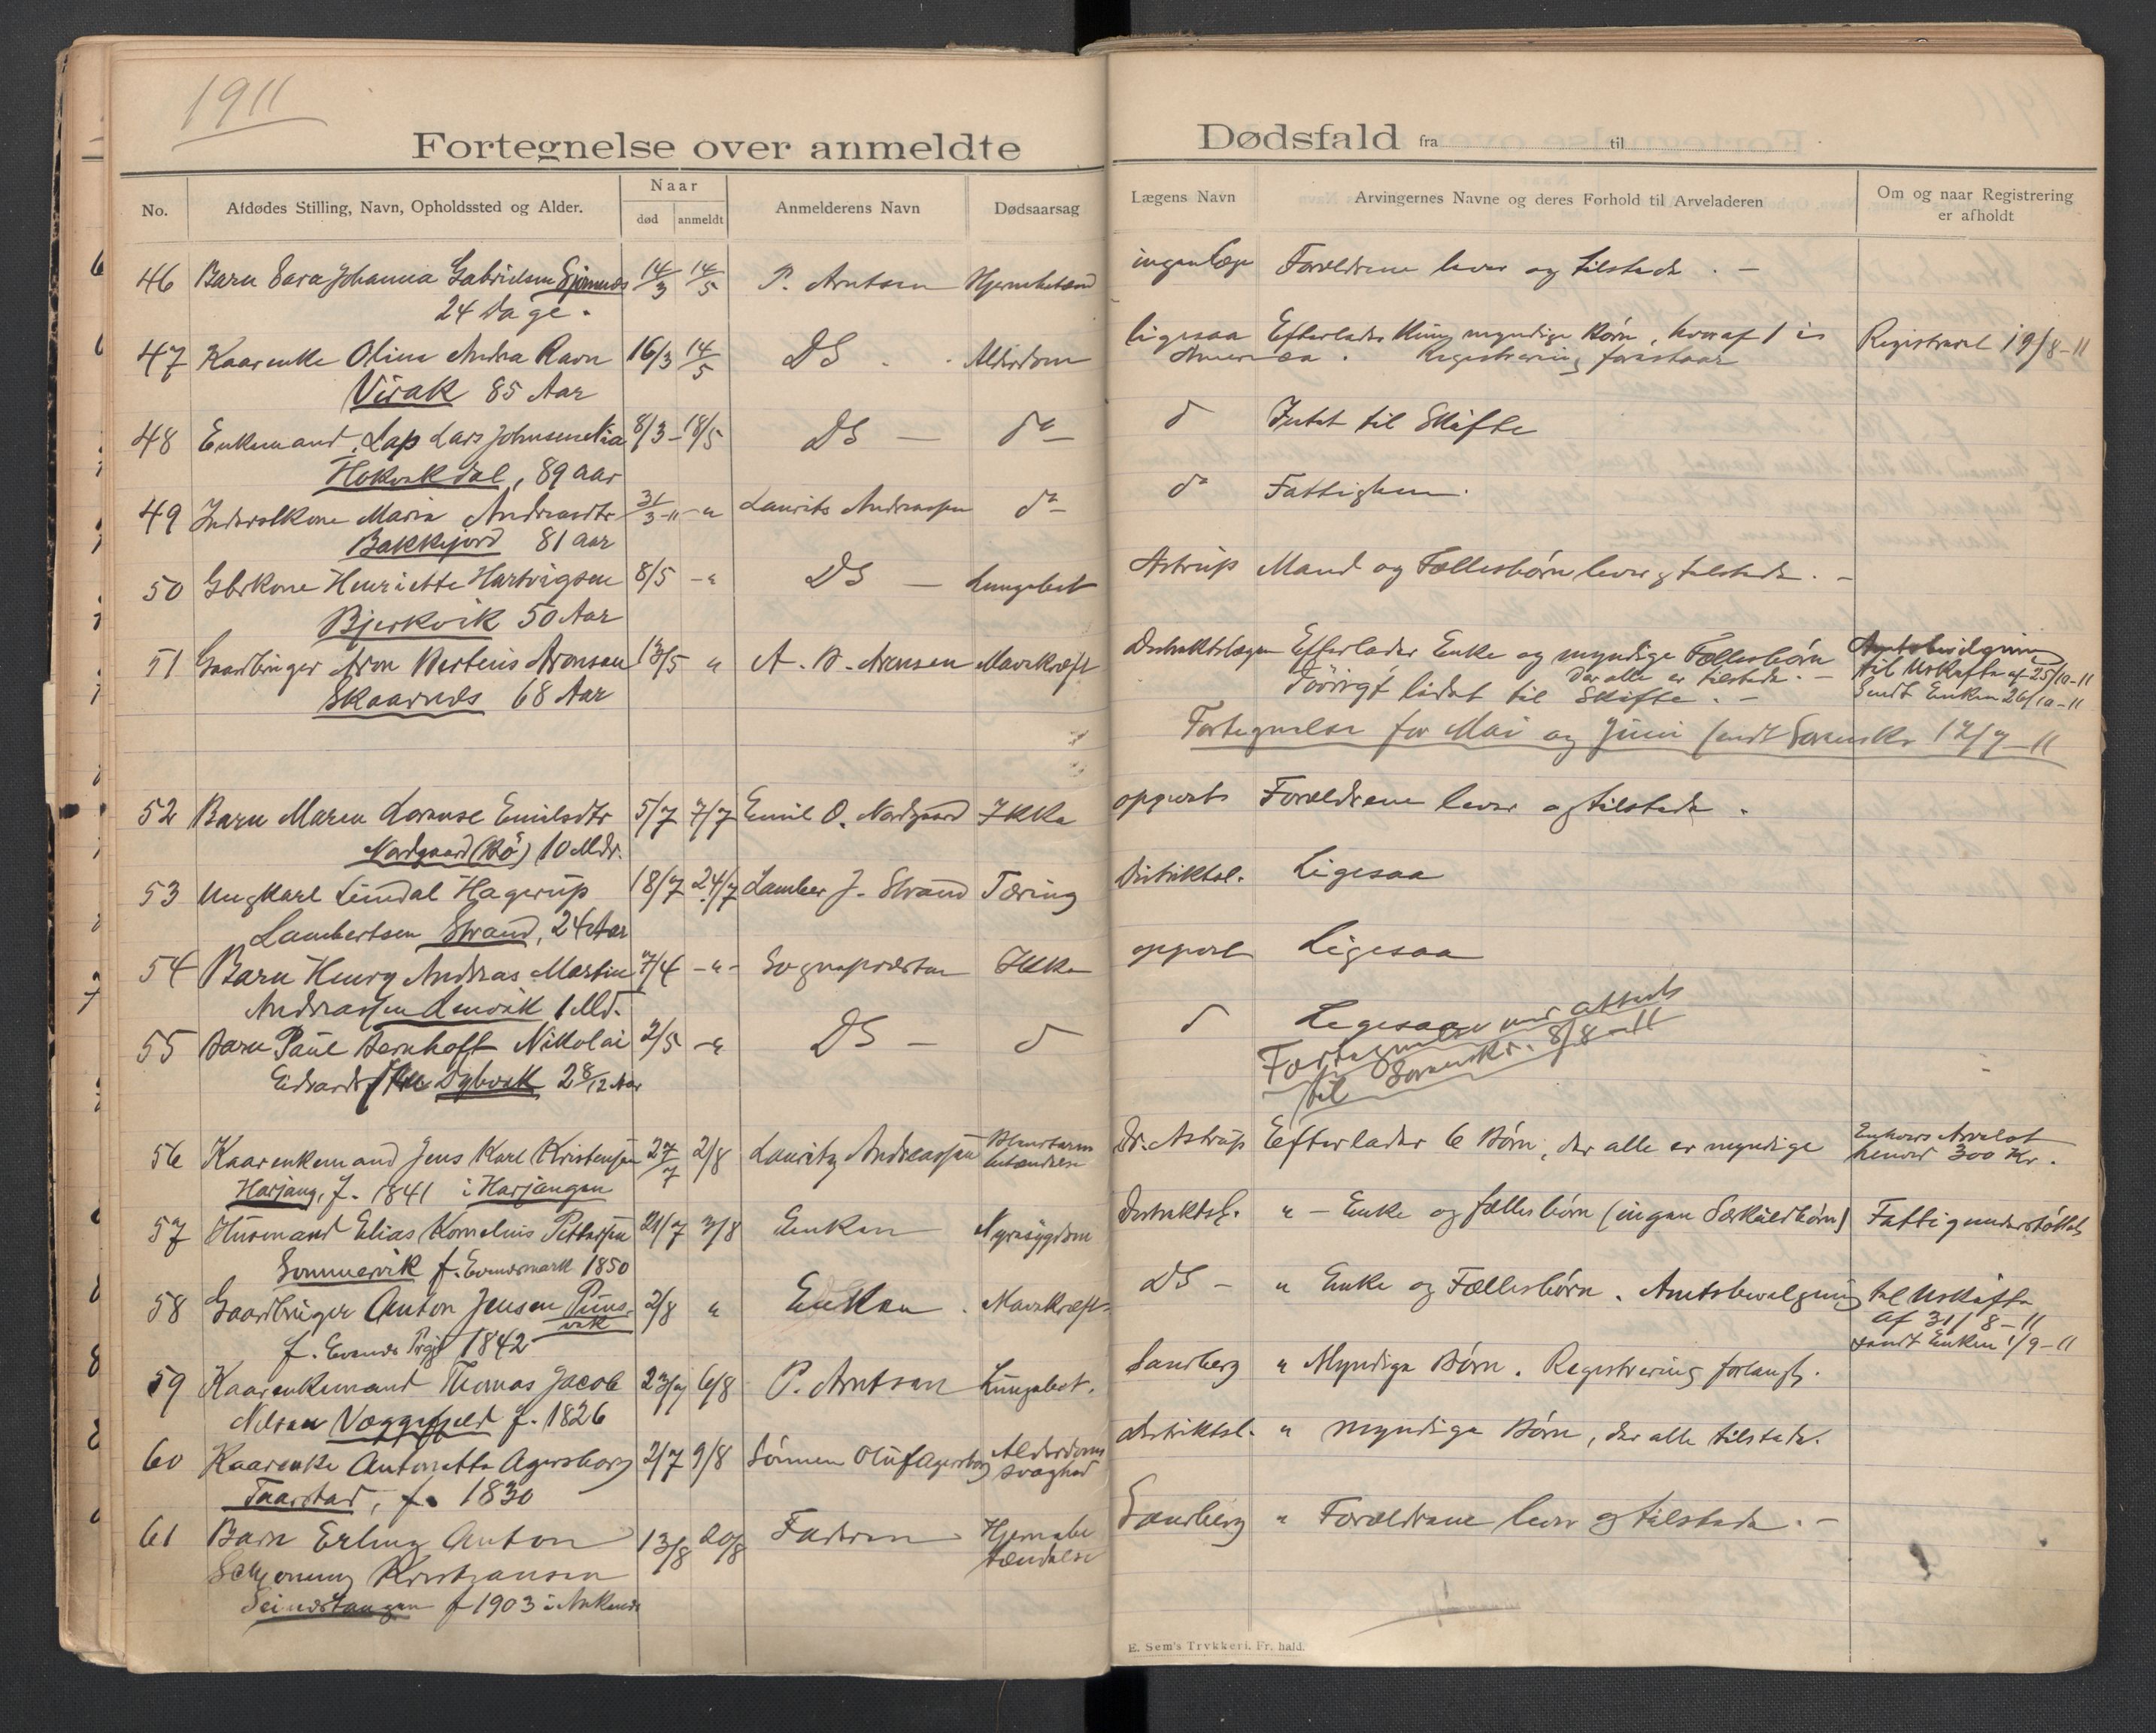 1911
Fortegnelse over anmeldte
No.
Afdødes Stilling, Navn, Opholdssted og Alder.
Naar
død
anmeldt
Anmelderens Navn
Dødsaarsag
46 Barn Sara Johanna Gabrielsen 14/3 14/5 P. Arntsen
24 dage.
47 Kaarenke Olina Andrea Ravn 16/3 14/5 DS - Alderdom
Virak 85 Aar
48 Enkemand, Lap Lars Johnsen 8/3 - 18/5 DS — do —
89 aar
49 Inderstkone Maria Andreasdtr 31/3-11 - " Laurits Andreassen do -
Bakkejord 81 aar
50 Gbrkone Henriette Hartvigsen 8/5 - " DS — Lungebet
Bjerkvik 50 Aar
51 Gaardbruger Aron Berteus Aronsen 13/5 " A. B. Arensen Mavekræft
Skaarnes 68 Aar
52 Barn Maren Lorense Emilsdtr 5/7 7/7 Emil O. Nordgaard Ikke
Nordgaard (Bø) 10 Mdr.
53 Ungkarl Hagerup 18/7 24/7 J. Strand Tæring
Lambertsen Strand, 24 Aar
54 Barn Henry Andreas Martin 7/4 - " - Sognepræsten Ikke
Andreassen Lenvik 1 Md.
55 Barn Paul Bernhoft Nikolai 2/5 - " DS — do
2 8/12 Aar
56 Kaarenkemand Jens Karl Kristensen 27/7 2/8 Lauritz Andreassen
Harjang, f. 1841 i Harjangen
57 Husmand Elias Kornelius Pettersen 21/7 3/8 Enken Nyresygdom
Sommervik f. Evenesmark 1850
58 Gaardbruger Anton Jensen Puns- 2/8 " Enken Mavekræft
vik
f. Evenes Prgj 1842
59 Kaarenkemand Thomas Jacob 23/7 6/8 P. Arntsen Lungebet.
Nilsen Væggefjeld f. 1826
60 Kaarenke Antonette Agersborg 2/7 9/8 Sønnen Oluf Agersborg Alderdoms
svaghed
Taarstad, f. 1830
61 Barn Erling Anton 13/8 20/8 Faderen Hjernebe
tændelse
Schjønning Kristjansen
f 1903 i Ankenes
Dødsfald fra til
Lægens Navn
Arvingernes Navne og deres Forhold til Arveladeren
Om og naar Registrering
er afholdt
ingen Læge Forældrene lever og tilstede. —
ligesaa Efterlader kun myndige børn, hvoraf 1 i Registreret 19/8-11
Amerika. Registrering forestaar
do Intet til Skifte
do Fattiglem.
Astrup Mand og Fællesbørn lever og tilstede. —
Distriktslægen Efterlader Enke og myndige Fællesbørn Amtsbevilgning
der alle er tilstede. — til Uskifte af 25/10-11
Forøvrigt lidet til Skifte. — Sendt Enken 26/10-11
Fortegnelse for Mai og Juni sendt Sorenskr 12/7-11
oppgives Forældrene lever og tilstede.
Distriktsl. Ligesaa
opgivet Ligesaa
do Ligesaa
Fortegnelse med attest
til Sorenskr. 8/8-11
Dr. Astrup Efterlader 6 Børn, der alle er myndige Enhvers Arvelod
henved 300 Kr.
Distriktsl. " — Enke og fællesbørn (ingen Særkuldbørn) Fattigunderstøttet
DS — " Enke og Fællesbørn. Amtsbevilgning til Uskifte
af 31/8-11
sendt Enken 1/9-11
Sandberg " Myndige Børn. Registrering forlangt.
distriktsl. " myndige Børn, der alle tilstede.
Sandberg " Forældrene lever og tilstede. —
E. Sem's Trykkeri. Fr. hald.